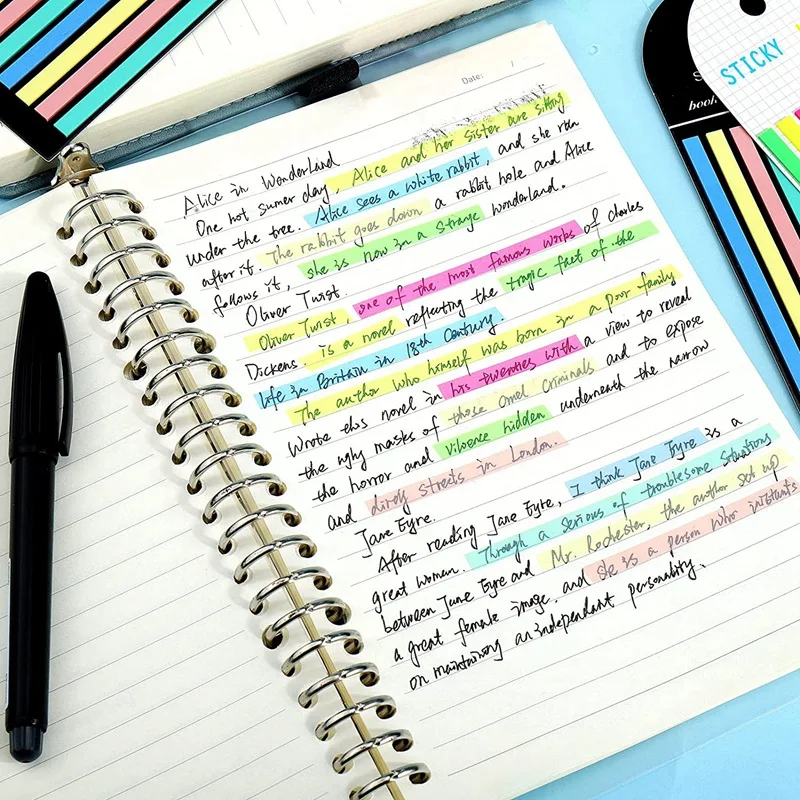 Date: /
Alice in Wonderland
One hot sumer day, Alice and her sister are sitting
under the tree. Alice sees a white rabbit, and she ran
after it. The rabbit goes down a rabbit hole and Alice
follows it, she is now in a strage wonderland.
Oliver Twist.
Oliver Twist, one of the most famous works of charles
Dickens. is a novel reflecting the tragic fact of the
life in Britain in 18th Century
The author who himself was born in a poor family
Wrote this novel in his twenties with a view to reveal
the ugly masks of those criminals and to expose
the horror and hidden underneath the narrow
and streets in London.
Jane Eyre.
After reading Jane Eyre, I think Jane Eyre is a
great woman. Through a serious of troublesome situations
between Jane Eyre and Mr. Rochester, the author set up
a great female image. and she is a person who
on maintaining an independant personality.
STICKY
book